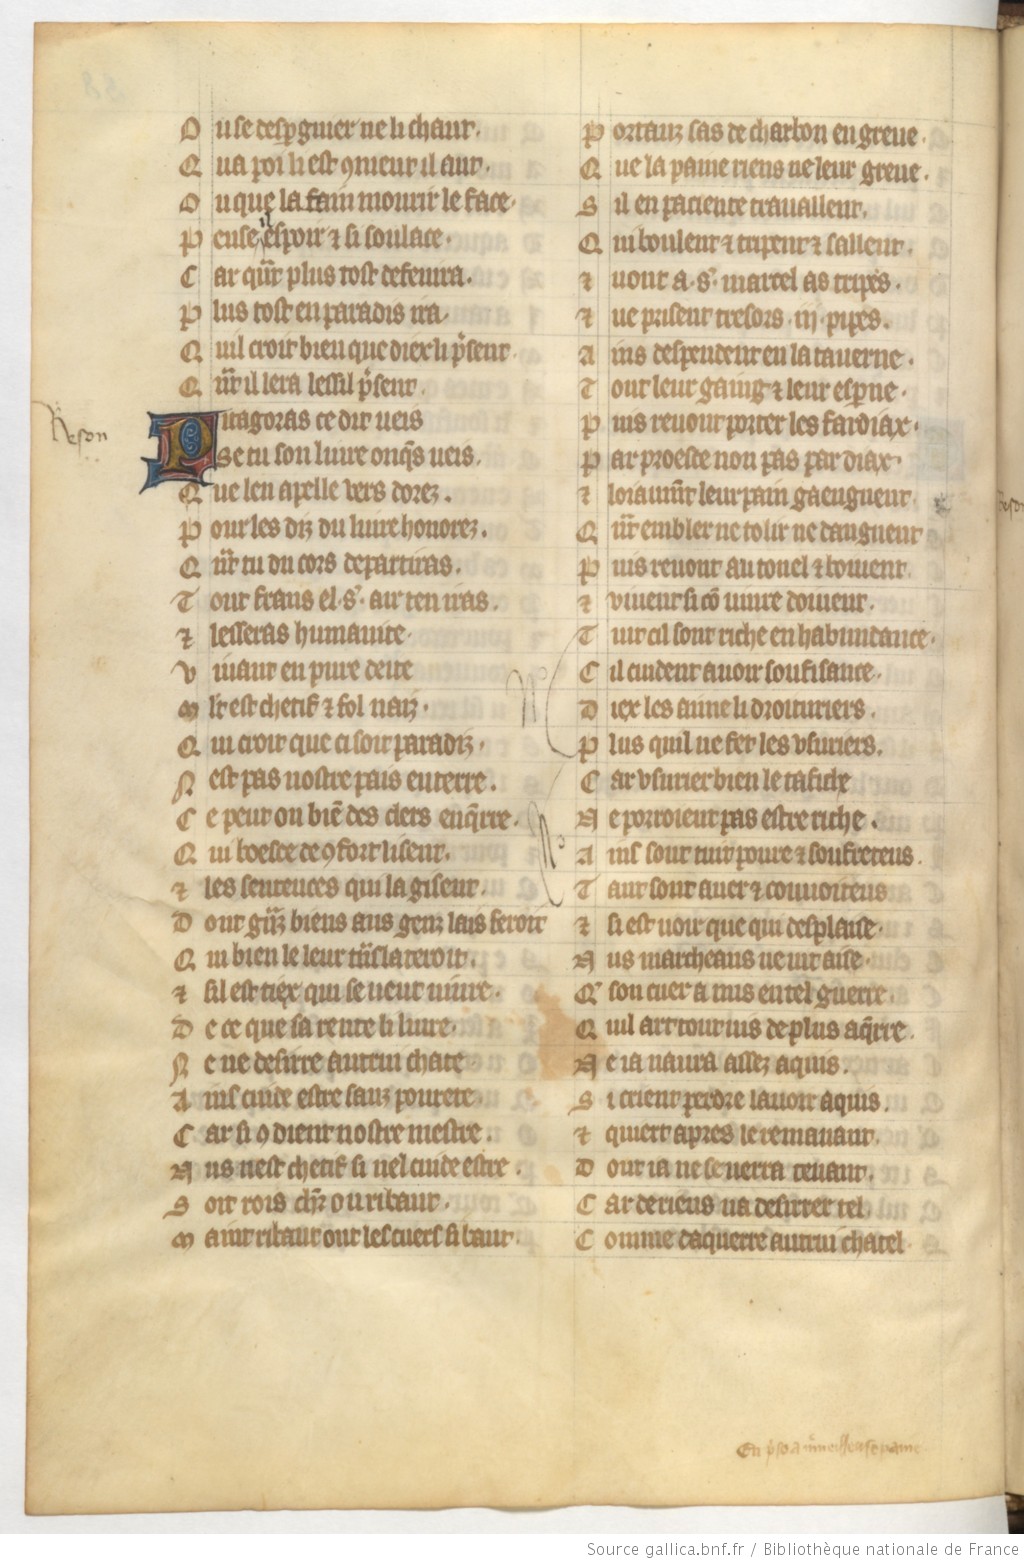 O u se despgnier ne li chaut.
Q ua poi li est 9meut il aut.
O u que la fain mourir le face.
P ense il espoir ⁊ si soulace.
C ar qũt plus tost defenira.
P lus tost en paradis ira.
Q uil croit bien que diex li p̃sent.
Q ũt il lera lessil p̃sent.
Reson
P itagoras ce dit neis
se tu son liure onq̃s veis.
Q ue len apelle vers dorez.
P our les diz du liure honorez.
Q ũt tu du cors departiras.
T out frans el s̃. air ten iras.
⁊ lesseras humanite.
V iuant en pure deite
M lt est chetif ⁊ fol naiz.
Q ui croit que ci soit paradiz.
N est pas nostre pais en terre.
C e peut on biẽ des clers enq̃rre.
Q ui boesce de 9fort lisent.
⁊ les sentences qui la gisent.
D ont gũz biens aus genz lais feroit
Q ui bien le leur trãslateroit.
⁊ sil est tiex qui se veut uiure.
D e ce que sa rente li liure.
N e ne desirre autrui chate
A ins cuide estre sanz pourete.
C ar si 9 dient nostre mestre.
N us nest chetif si nel cuide estre.
S oit rois chr̃ ou ribaut.
M aint ribaut ont les cuers si baut.
P ortanz sas de charbon en greue.
Q ue la paine riens ne leur greue.
S il en pacience trauaillent.
Q ui boulent ⁊ tripent ⁊ sallent.
⁊ vont a .s̃. marcel as tripes.
⁊ ne prisent tresors .iij. pipes.
A ins despendent en la tauerne.
T out leur gaing ⁊ leur esp̃ne.
P uis reuont porter les fardiax.
P ar proesce non pas par diax
⁊ loiaumẽt leur pain gaengnent.
Q ũt embler ne tolir ne daingnent
P uis reuont au tonel ⁊ boiuent.
⁊ viuent si cõ uiure doiuent.
T uit cil sont riche en habundance.
C il cuident auoir soufisance.
D iex les aime li droituriers.
P lus quil ne fet les vsuriers.
C ar vsurier bien le tafiche
N e porroient pas estre riche.
A ins sont tuit poure ⁊ soufreteus.
T ant sont auer ⁊ conuoiteus
⁊ si est uoir que qui desplaise.
N us marcheans ne uit aise.
Q̃ son cuer a mis en tel guerre.
Q uil art touz uis de plus aq̃rre.
N e ia naura assez aquis.
S i crient perdre lauoir aquis.
⁊ quiert apres le remanant.
D ont ia ne se uerra tenant.
C ar de riens na desirrer tel
C omme daquerre autrui chatel
Source gallica.bnf.fr / Bibliothèque nationale de France